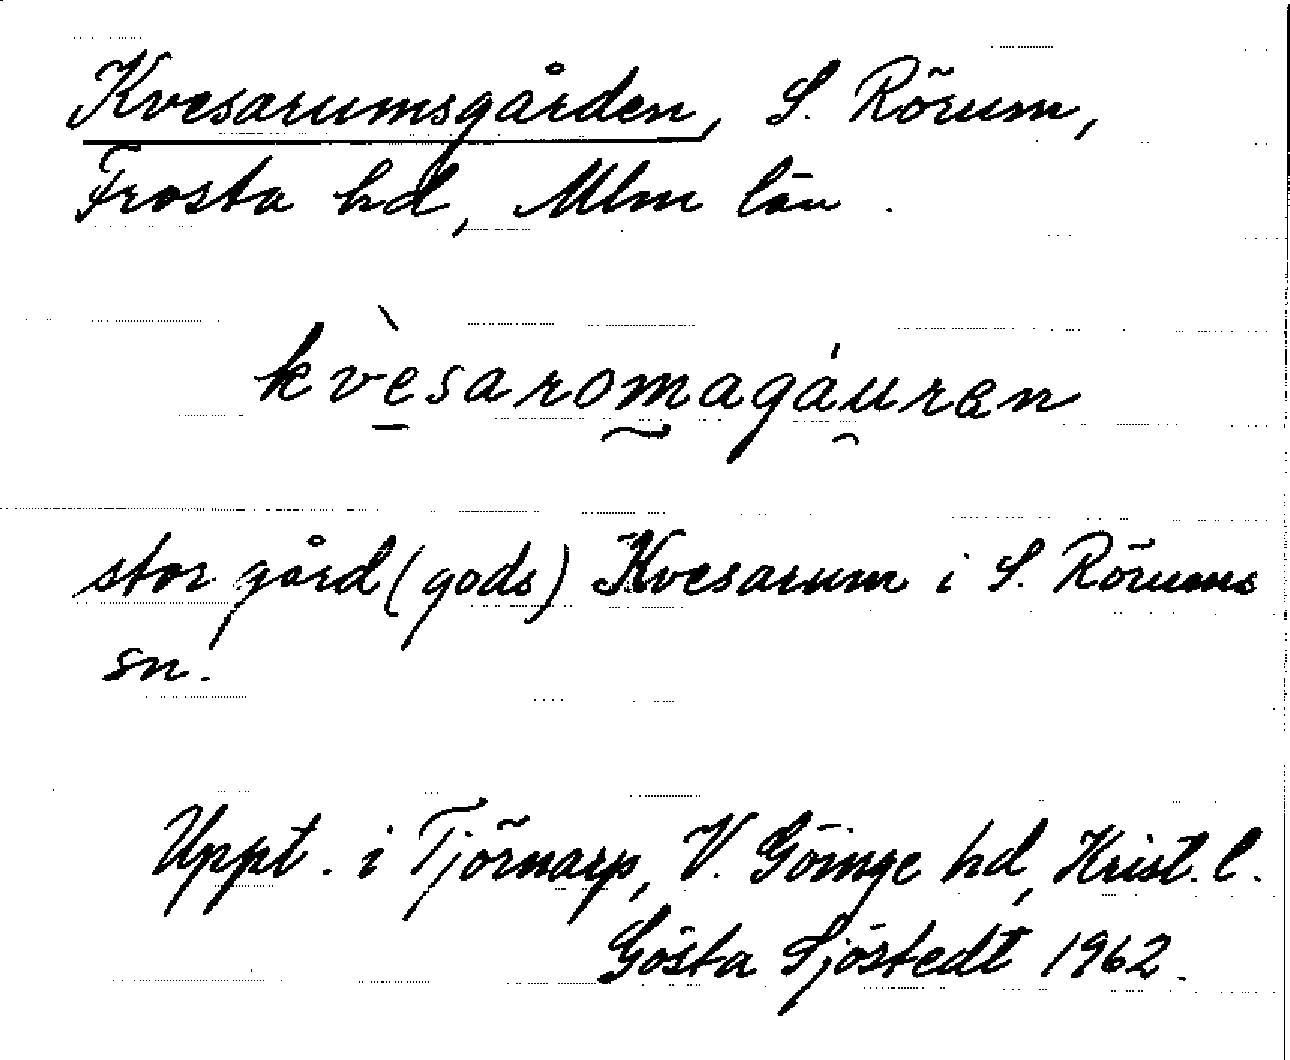 Kvesarumsgården, S. Rörum,
Frosta hd, Mlm län.
kvè̠saroma̰gá̯uren
stor gård (gods) Kvesarum i S. Rörums
sn.
Uppt. i Tjörnarp, V. Göinge hd, Krist. l.
Gösta Sjöstedt 1962.